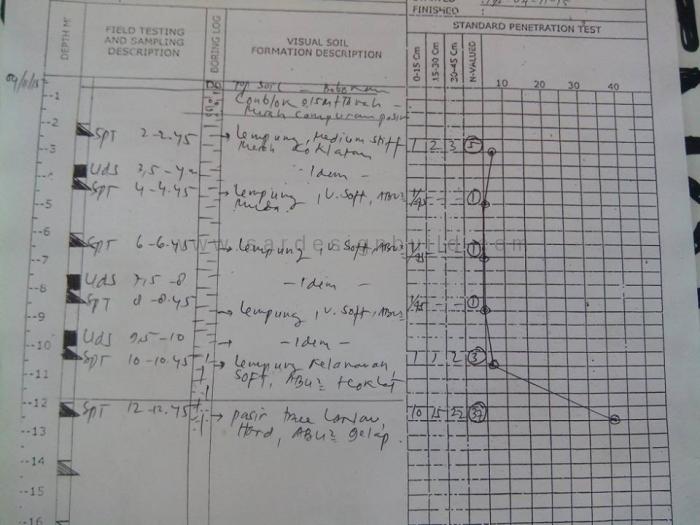 FINISHED :
DEPTH M'
FIELD TESTING
AND SAMPLING
DESCRIPTION
BORING LOG
VISUAL SOIL
FORMATION DESCRIPTION
STANDARD PENETRATION TEST
0-15 Cm
15-30 Cm
30-45 Cm
N-VALUED
10 20 30 40
--1
TOP SOIL
--2
SPT 2-2.45 Lempung, Medium stiff 1 2 3 5
Merah Koklatan
--3
Uds 3,5-4 -Idem-
--4
SPT 4-4.45 Lempung, V. Soft, ABU2 1/45 - - 1
--5
--6
SPT 6-6.45 Lempung, V. Soft, ABU2 1/45 - - 1
www.sardesignbuild.com
--7
Uds 7,5-8 -Idem-
--8
SPT 8-8.45 Lempung, V. Soft, ABU2 1/45 - - 1
--9
Uds 9,5-10 -Idem-
--10
SPT 10-10.45 Lempung Kelanauan, 1 1 2 3
SOFT, ABU2 +Coklat
--11
--12
SPT 12-12.45 pasir trace Lanau, 10 15 22 37
Hard, ABU2 gelap.
--13
--14
--15
--16